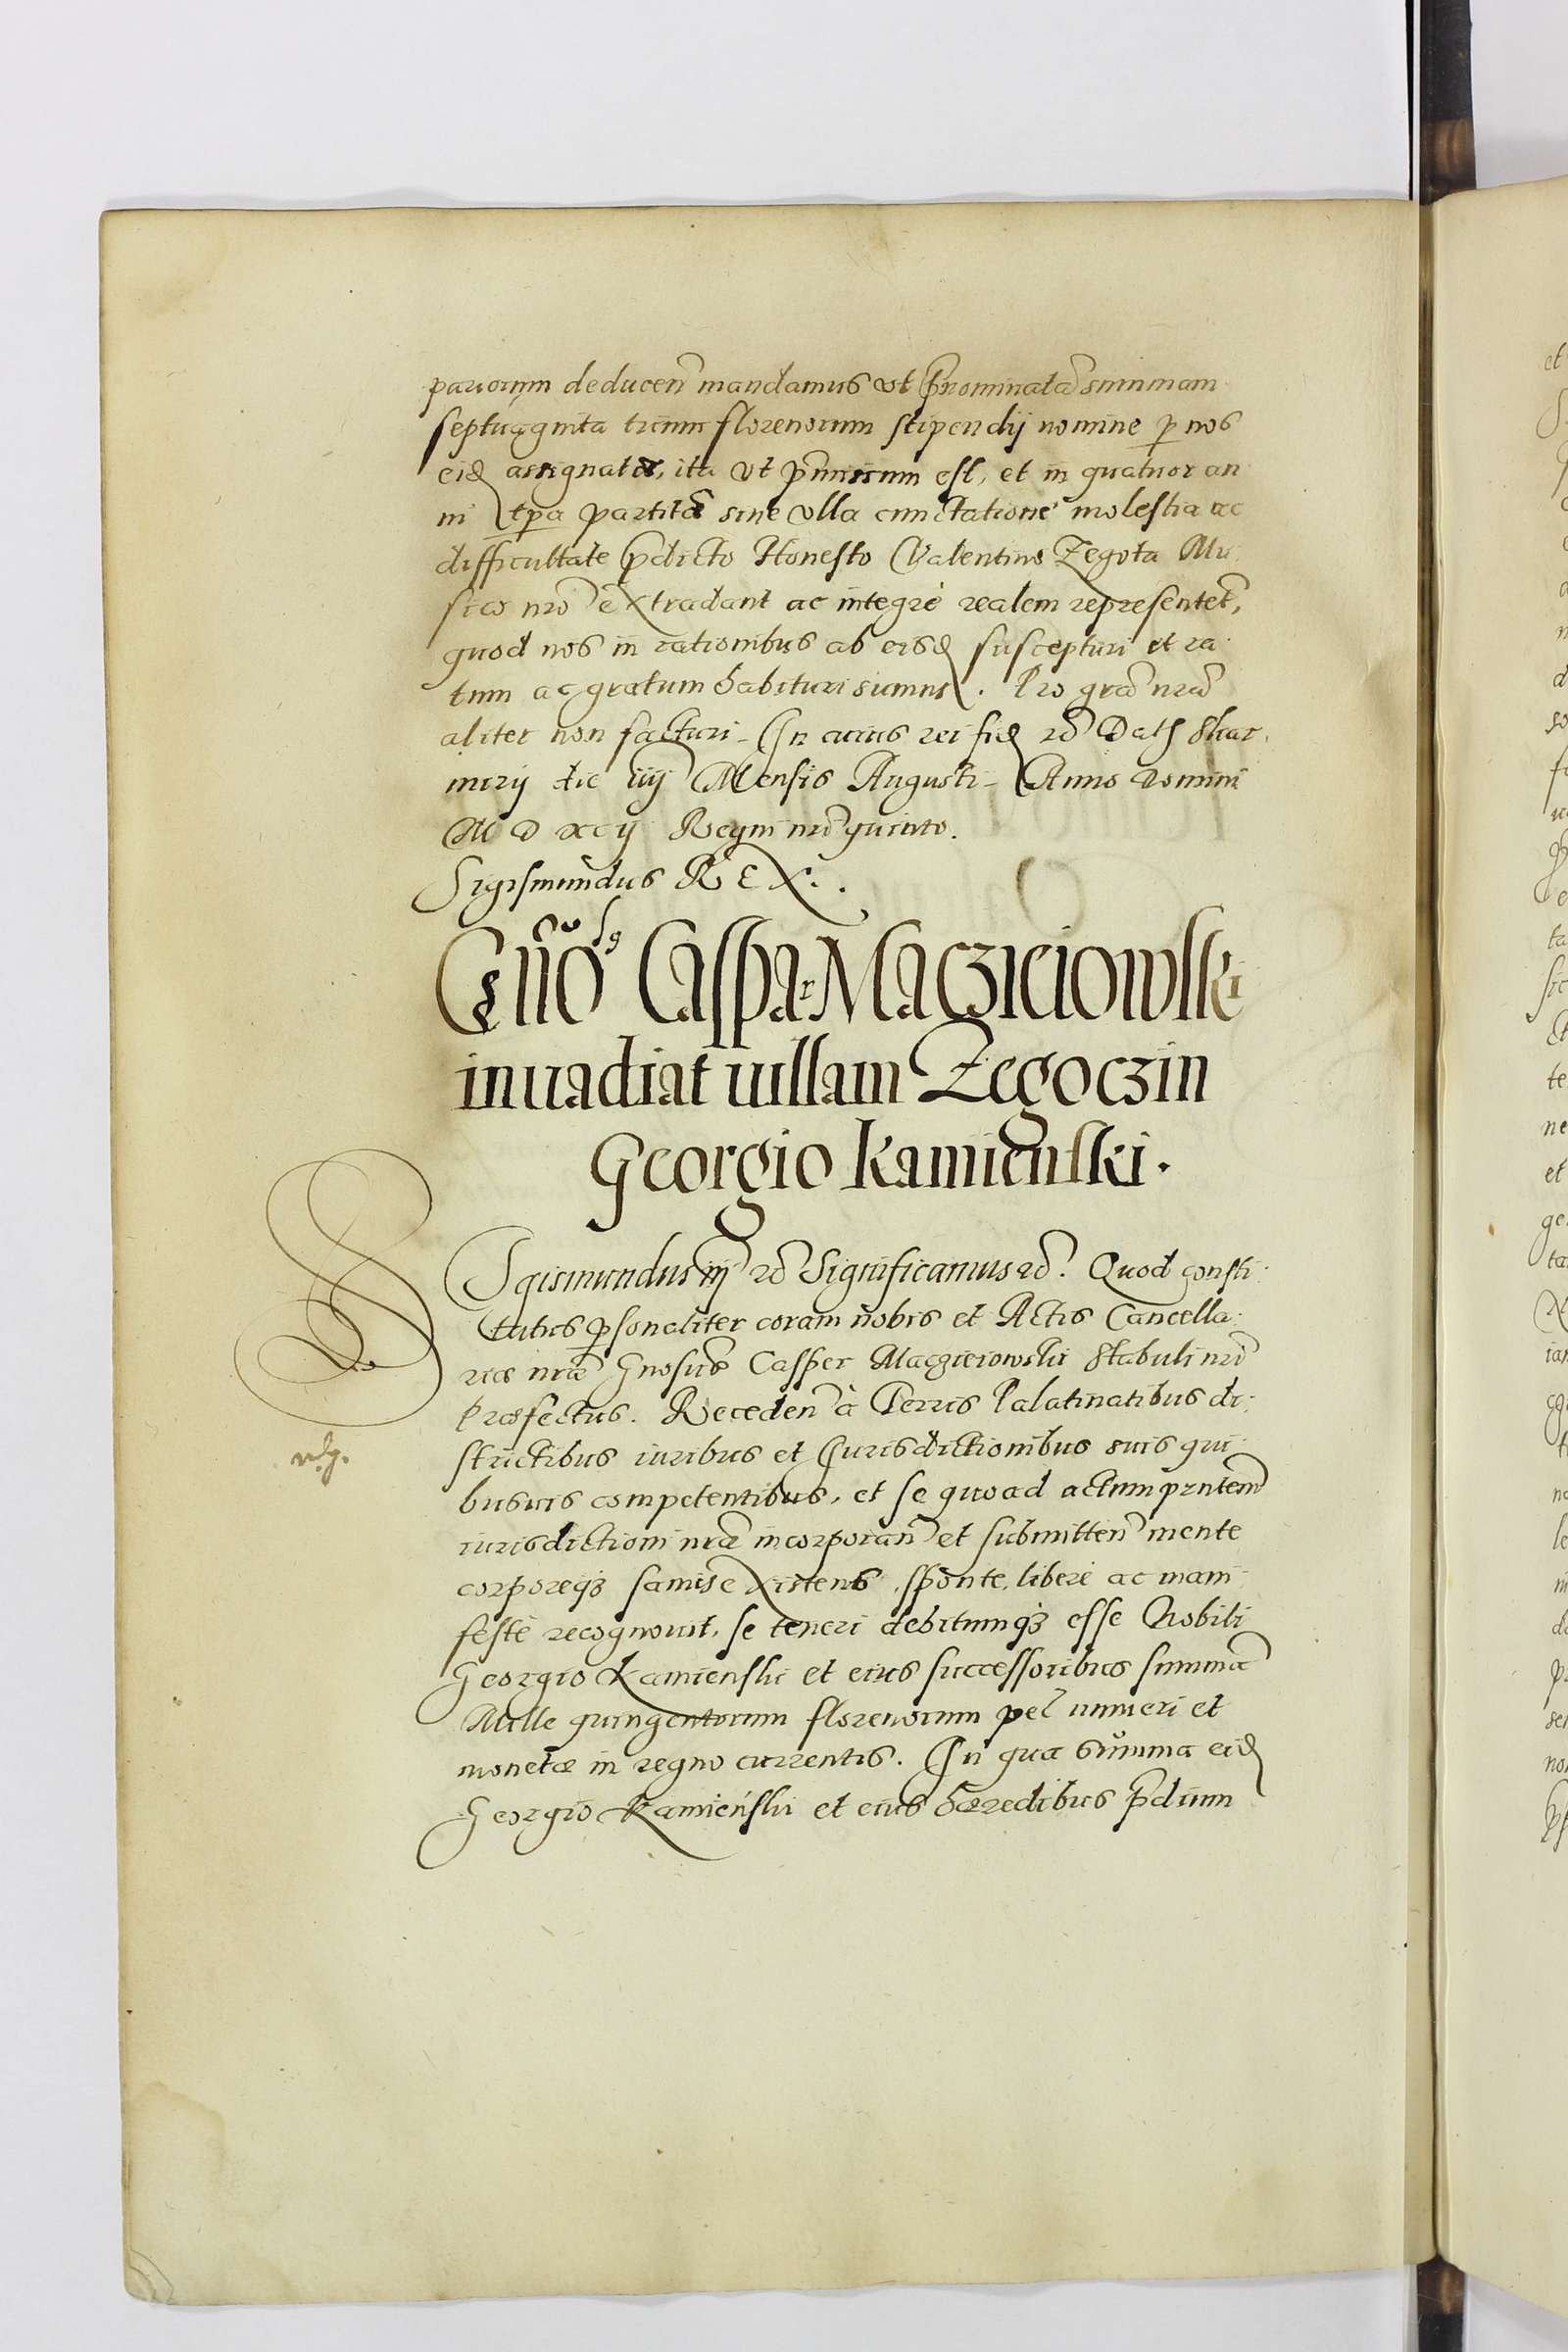 paruorum deducen̄ mandamus vt p̄nominatā summam
septuaginta trium florenorum stipendij nomine ꝑ nos
eid assignatā, ita vt p̄missum est, et in quatuor an
ni tp̄a partitā sine vlla cunctatione molestia ac
difficultate p̄dicto Honesto Valentino Zegota Mu
sico nr̄o extradant ac integrè realem repræsentet̄,
quod nos in rationibus ab eisd suscepturi et ra
tum ac gratum habituri sumus. Pro grā nrā
aliter non facturi. In cuius rei fid Dat
mirij die iiij Mensis Augusti. Anno Domini
M D xcij Regni nr̄i quinto.
Sigismundus REX.
Caspar Macziciowski
inuadiat uillam Zegoczin
Georgio Kamienski.
Sigismundus iij Significamus. Quod consti
tutus ꝑsonaliter coram nobis et Actis Cancella
riæ nr̄æ Gnosus Casper Macziciowski Stabuli nr̄i
Præfectus. Receden̄ à Terris Palatinatibus di
strictibus iuribus et Iurisdictionibus suis qui
busuis competentibus, et se quoad actum prntem̄
iurisdictioni nr̄æ incorporan̄ et submitten̄ mente
corporeqꝫ sanus existens, sponte, libere ac mani
festè recognouit, se teneri debitumqꝫ esse Nobili
Georgio Kamienski et eius successoribus summā
Mille quingentorum florenorum pel numeri et
monetæ in regno currentis. In qua summa eid
Georgio Kamieński et eius hæredibus p̄dium